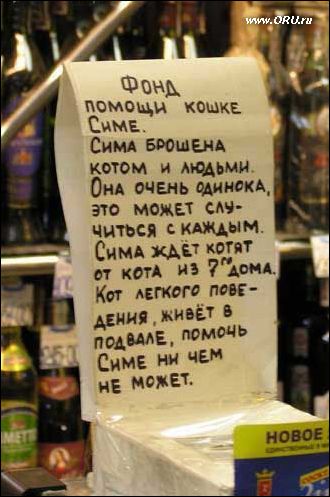 www.ORU.ru
Фонд
помощи кошке
Симе.
Сима брошена
котом и людьми.
Она очень одинока,
это может слу-
читься с каждым.
Сима ждёт котят
от кота из 7го дома.
Кот легкого пове-
дения, живёт в
подвале, помочь
Симе ни чем
не может.
НОВОЕ